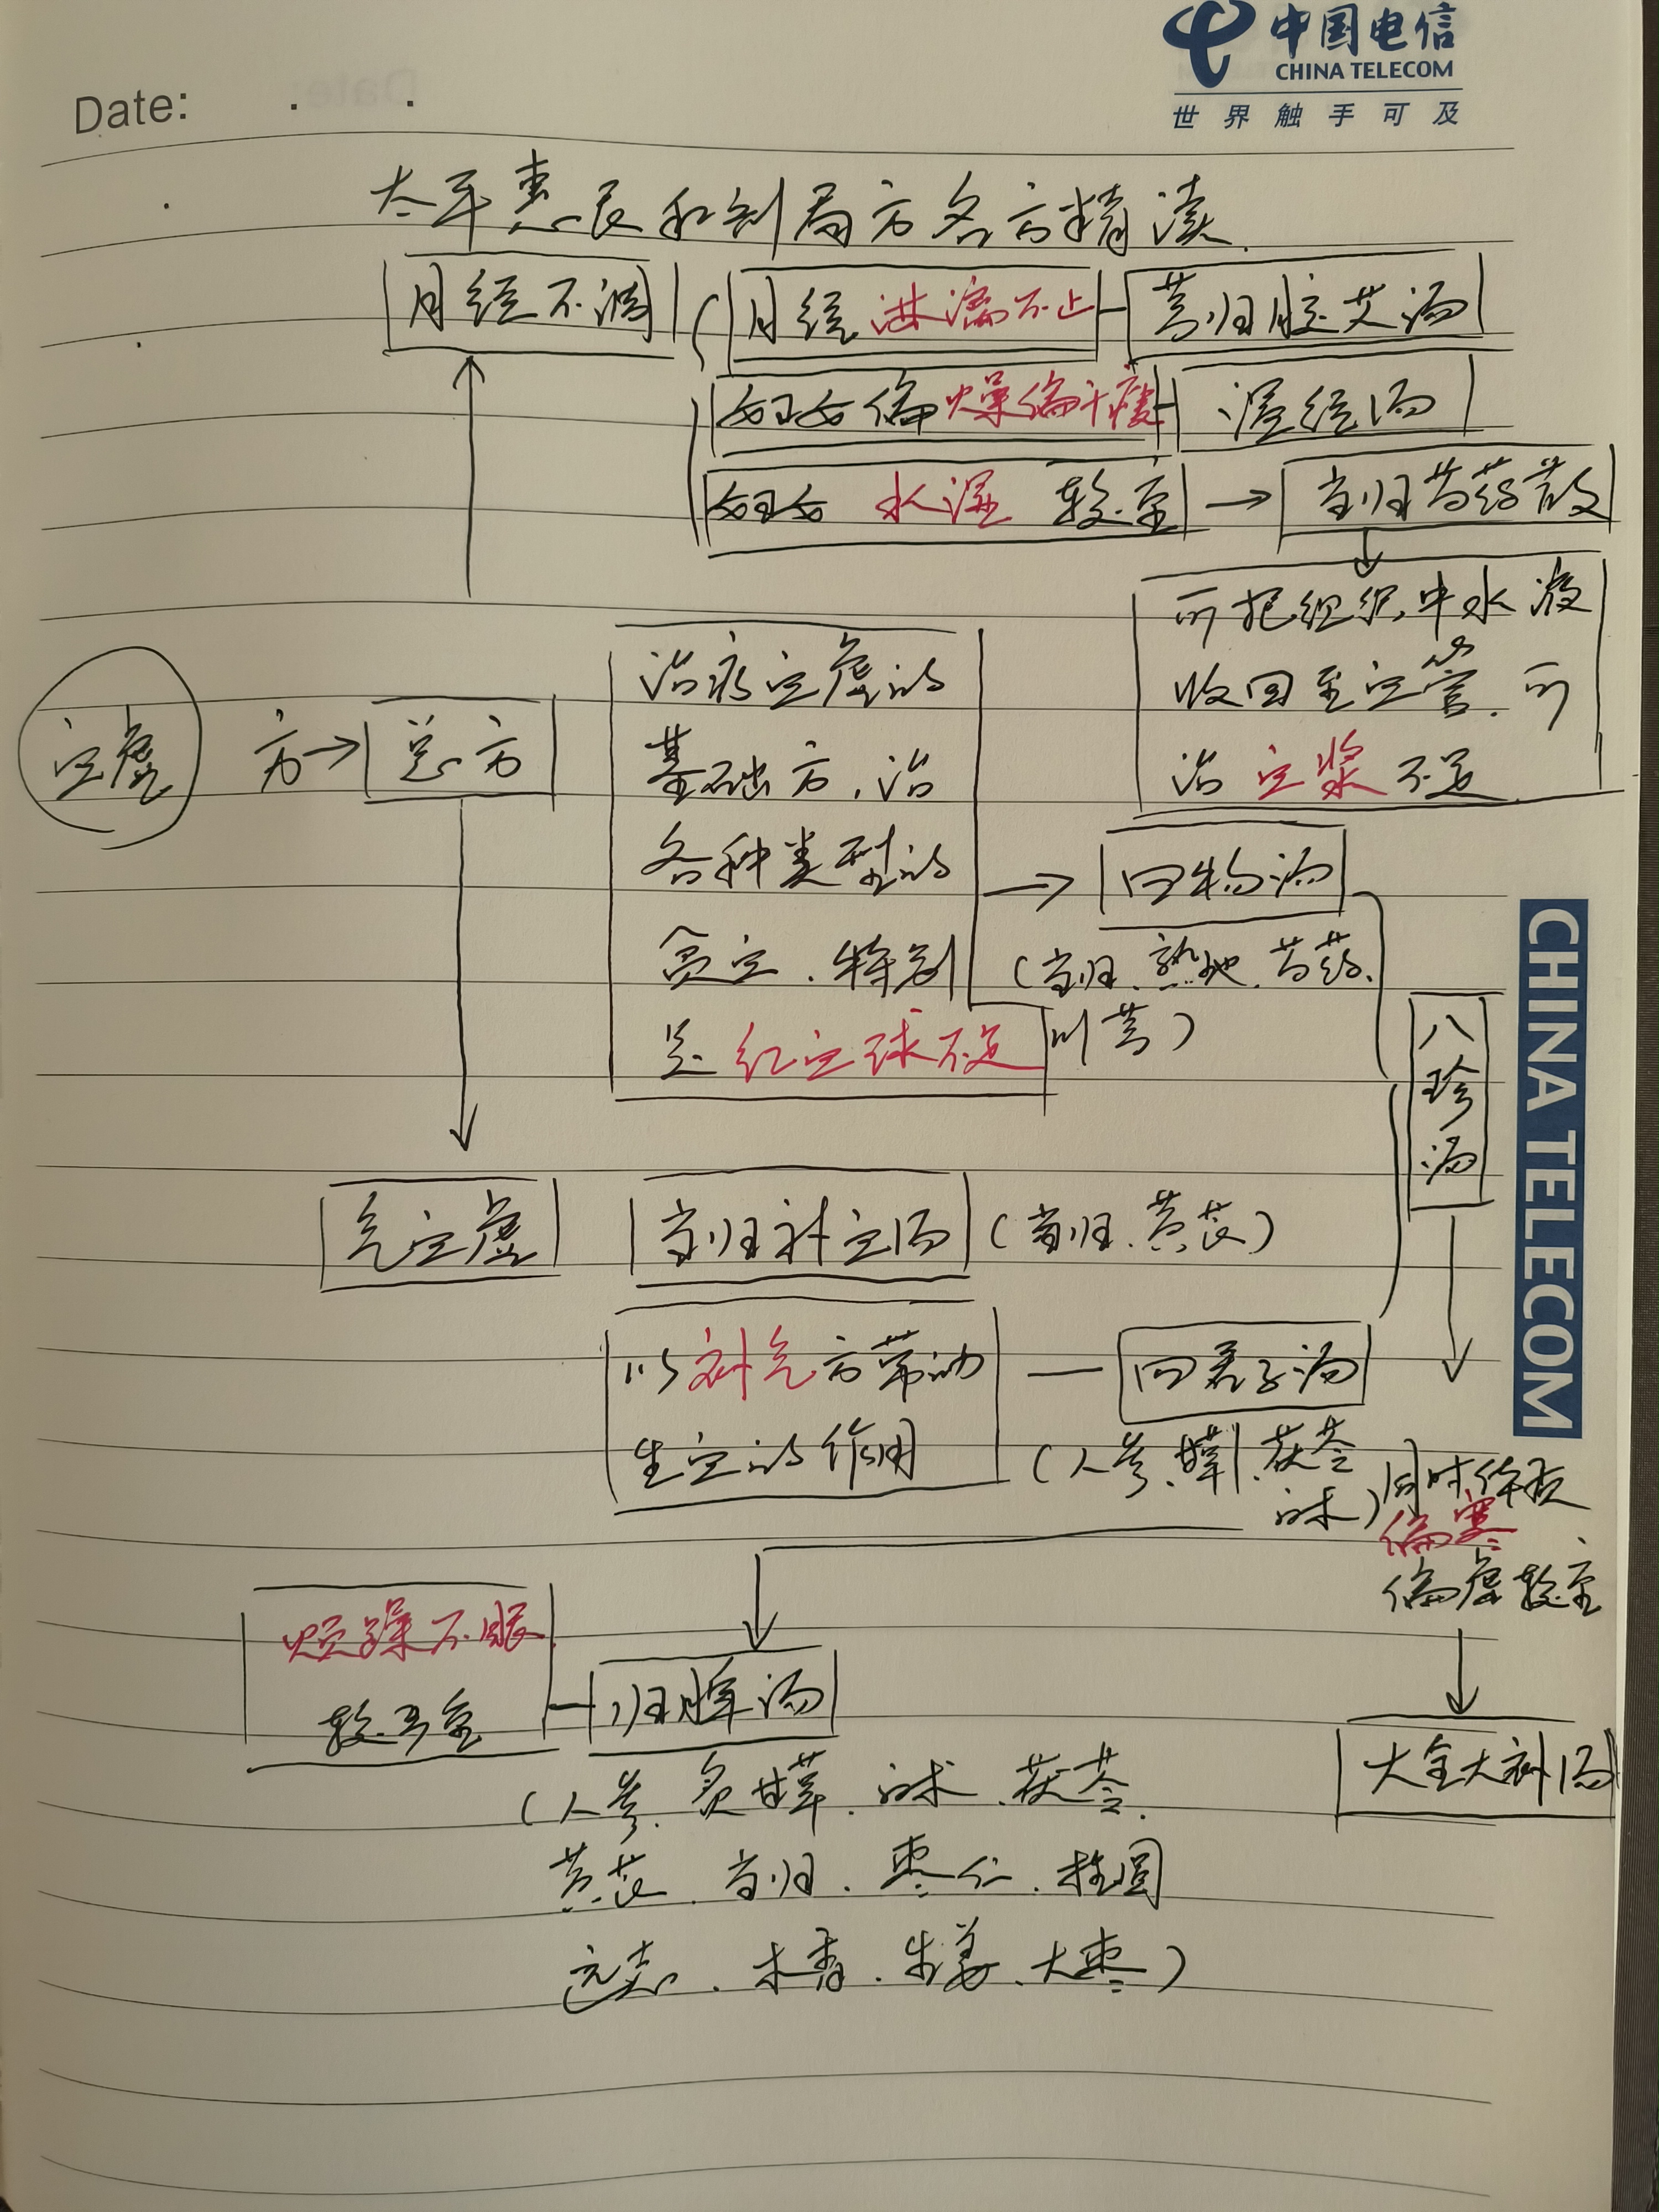 中国电信
CHINA TELECOM
世界触手可及
Date:
太平惠民和剂局方名方精读.
月经不调
月经淋漓不止
芎归胶艾汤
妇女偏燥偏干瘦
温经汤
妇女 水湿 较重
当归芍药散
可把组织中水液
收回至血管内.可
治血浆不足.
血虚
方
总方
治疗血虚的
基础方,治
各种类型的
贫血.特别
是红血球不足
四物汤
(当归.熟地.芍药.
川芎)
八珍汤
CHINA TELECOM
气血虚
当归补血汤
(当归.黄芪)
以补气方带动
生血的作用
四君子汤
(人参.甘草.茯苓
白术)
同时伴有
偏寒
偏虚较重
烦躁不眠.
较严重
归脾汤
(人参.炙甘草.白术.茯苓.
黄芪.当归.枣仁.桂圆
远志.木香.生姜.大枣)
大全大补汤